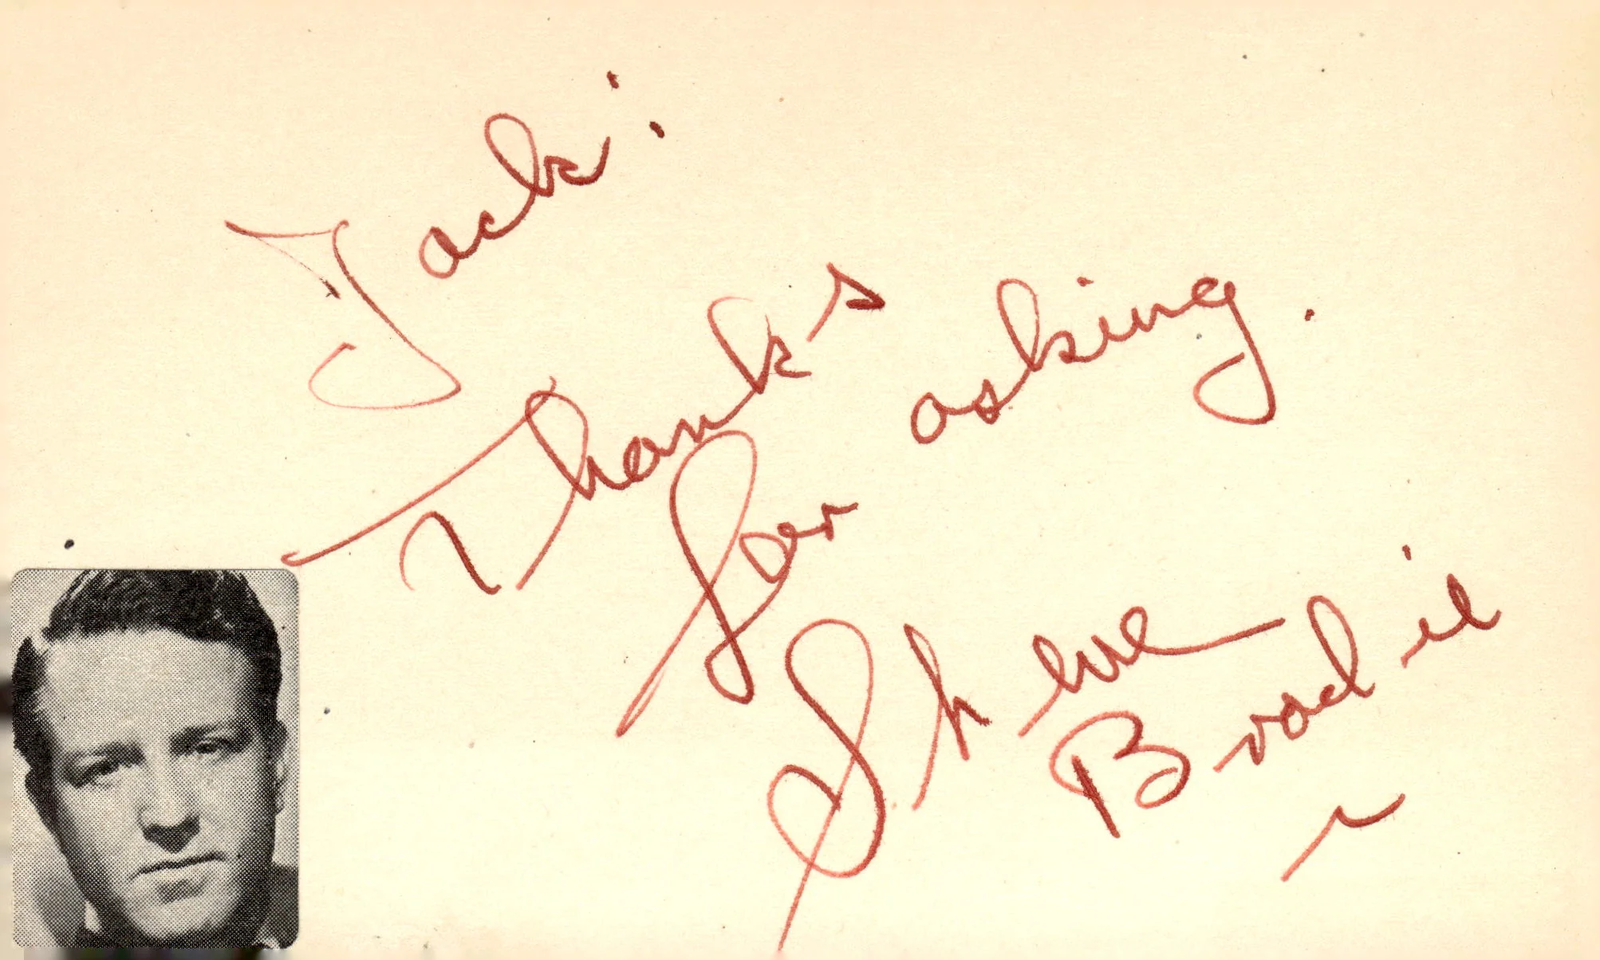 Jack:
Thanks
for asking.
Steve
Brodie